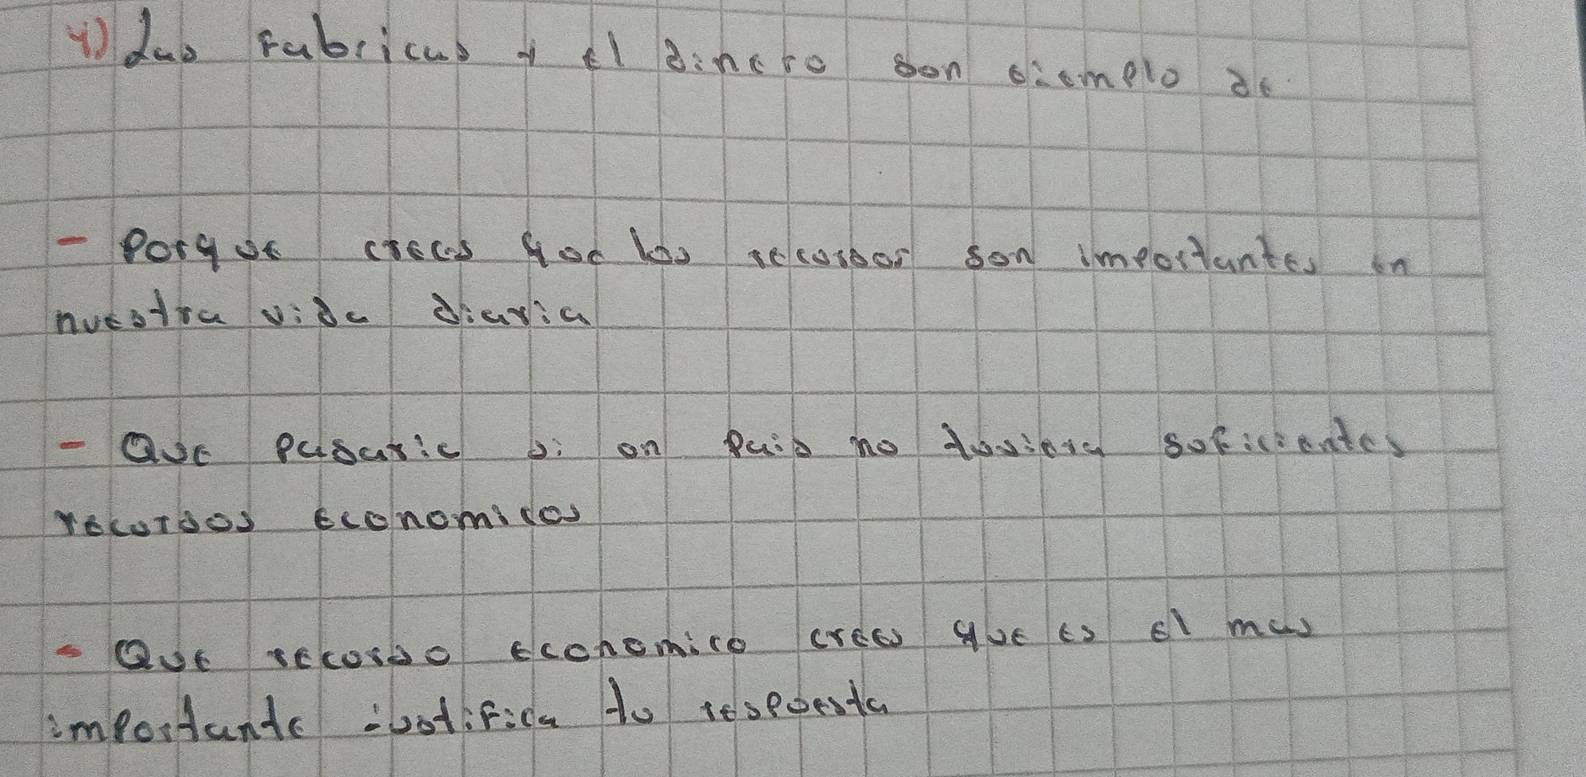 4) Las Fabricas y el dinero son ejemplo de:
- Porque crees que los recursos son importantes en
nuestra vida diaria
- Que pasaria si un pais no tuviera suficientes
recursos economicos
- Que recurso economico crees que es el mas
importante justifica tu respuesta